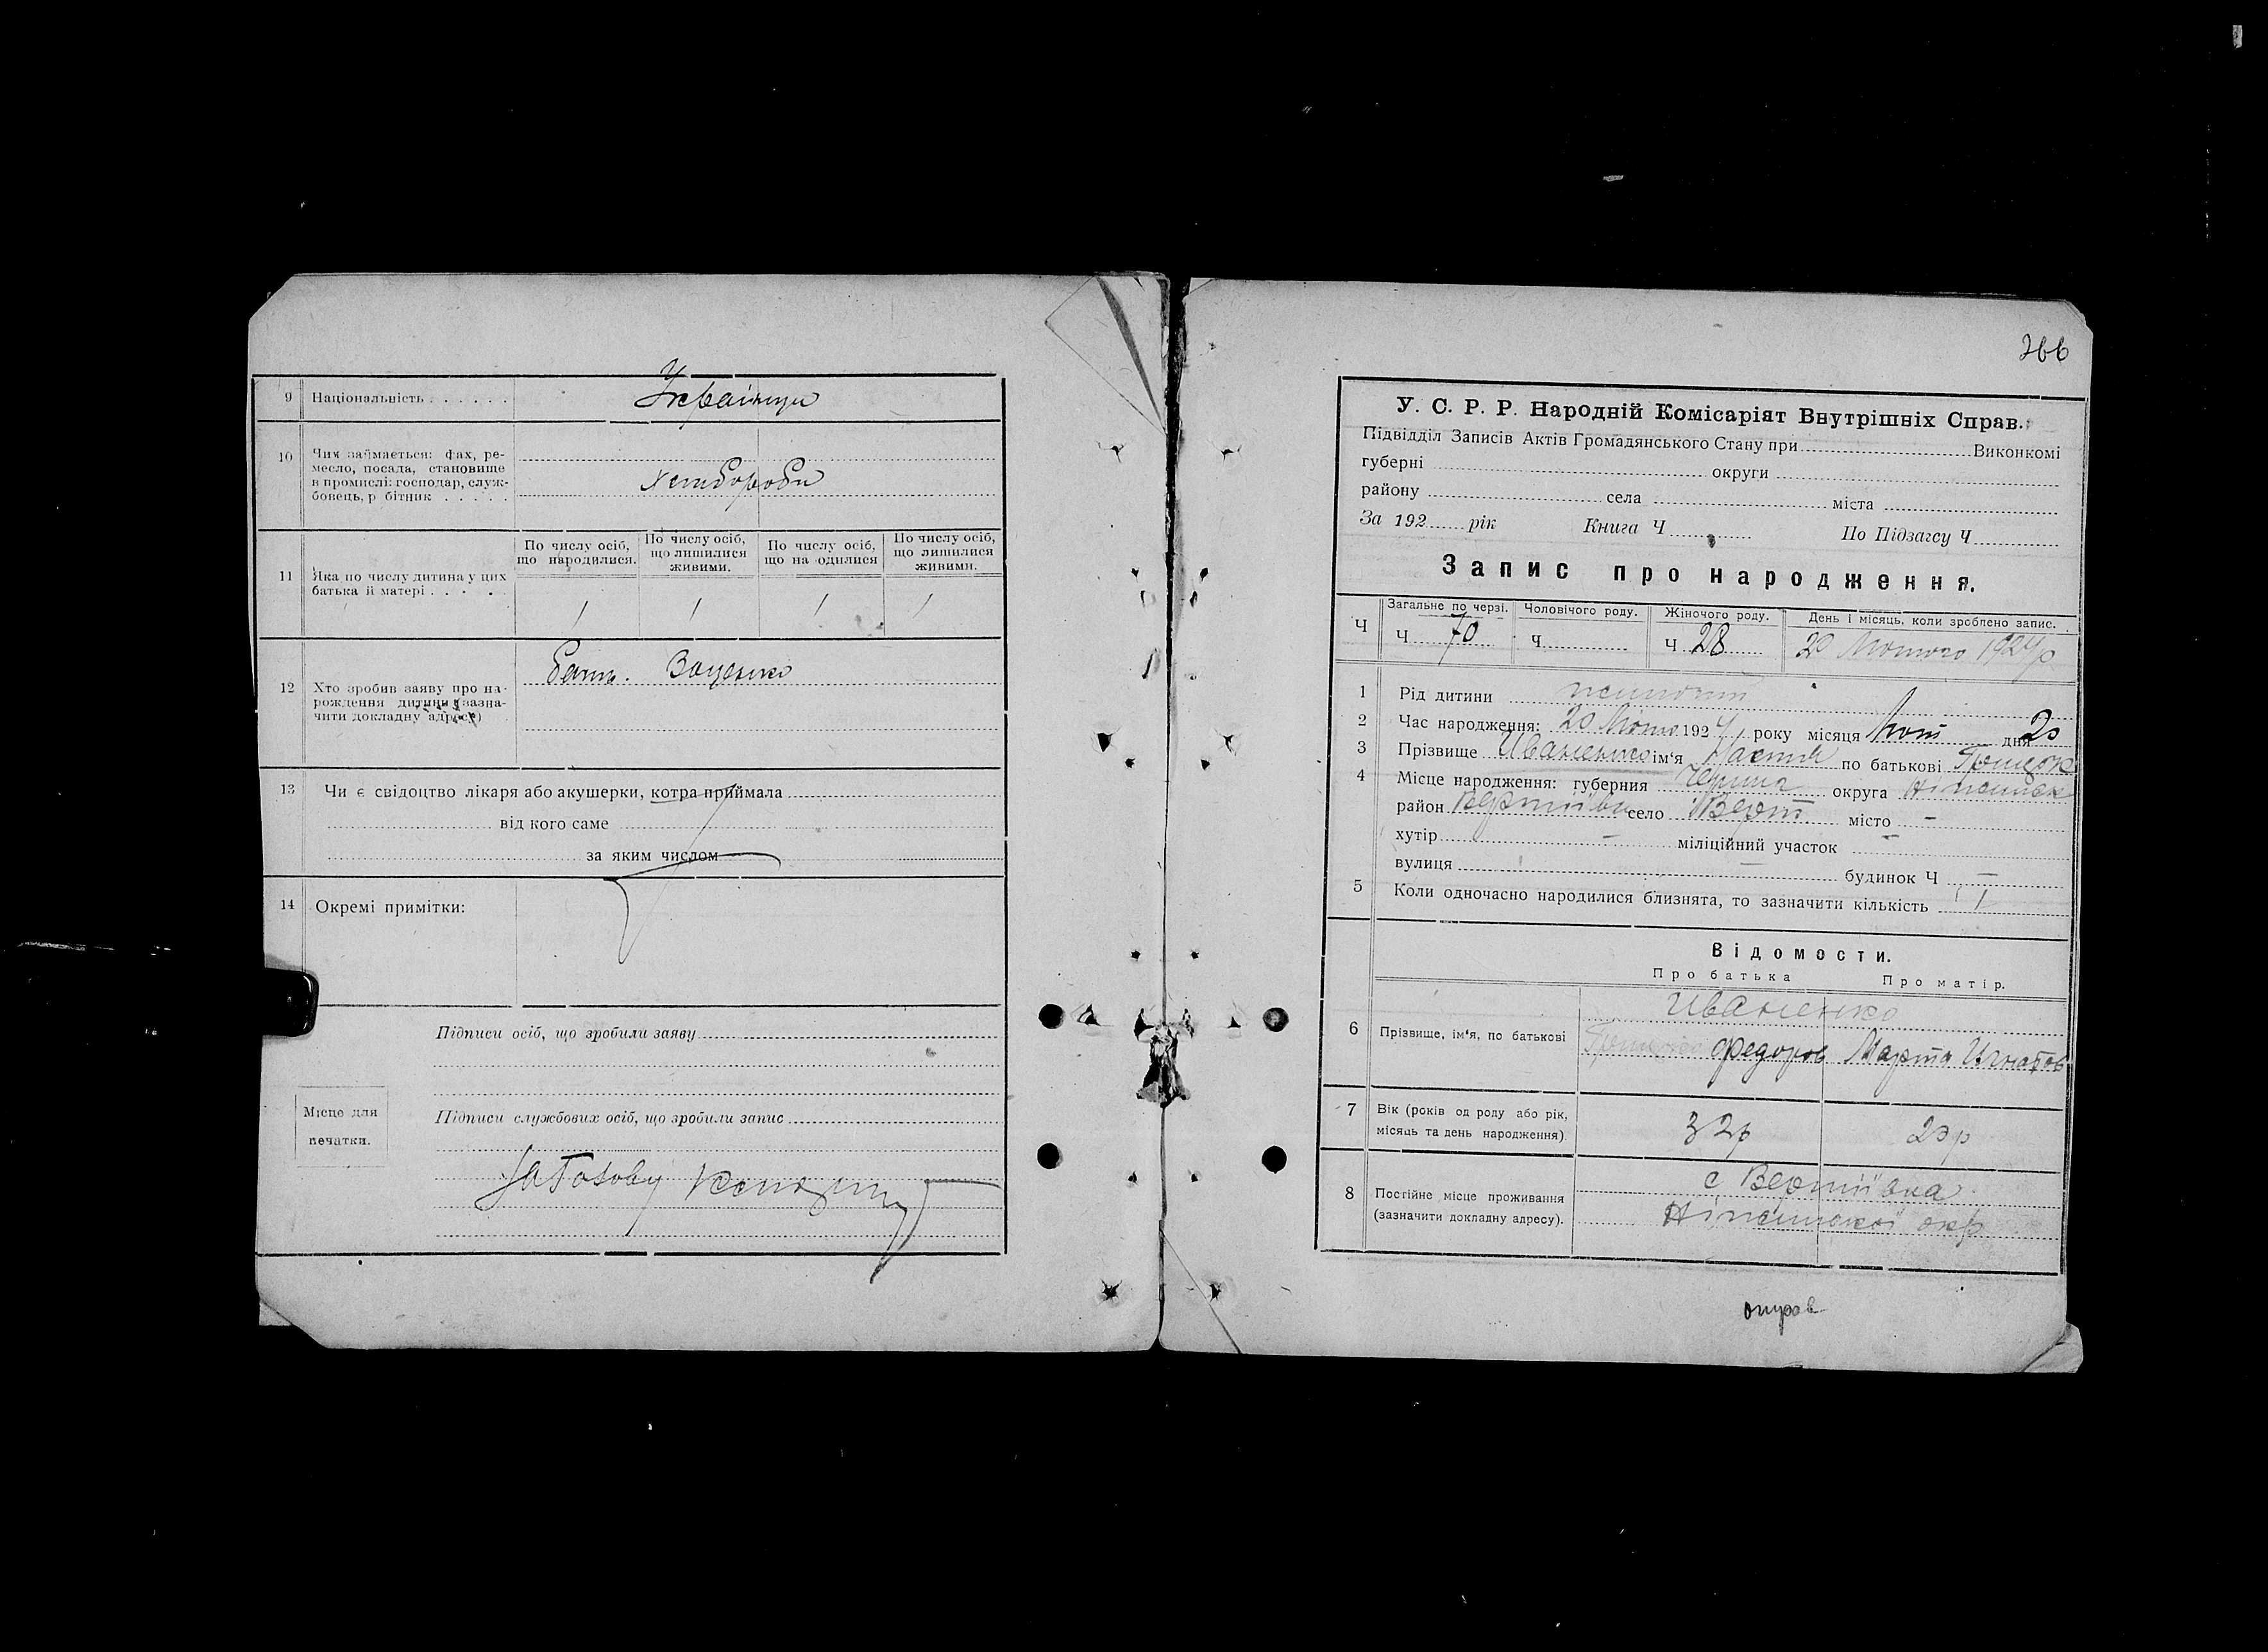 9 Національність . . . . . . Українци
10 Чим займається: фах, ре-
месло, посада, становище
в промислі: господар, служ-
бовець, р бітник . . . . . Хлібороби
11 Яка по числу дитина у цих
батька й матері . . . .
По числу осіб,
що народилися.
По числу осіб,
що лишилися
живими.
По числу осіб,
що на одилися
По числу осіб,
що лишилися
живими.
1 1 1 1
12 Хто зробив заяву про на-
рождення дитини (зазна-
чити докладну адресу)
Бать.
13 Чи є свідоцтво лікаря або акушерки, котра приймала
від кого саме
за яким числом
14 Окремі примітки:
Підписи осіб, що зробили заяву
Місце для
печатки.
Підписи службових осіб, що зробили запис
266
У. С. Р. Р. Народній Комісаріят Внутрішніх Справ.
Підвідділ Записів Актів Громадянського Стану при Виконкомі
губерні округи
району села міста
За 192 рік Книга Ч По Підзагсу Ч
Запис про народження.
Ч
Загальне по черзі. Чоловічого роду. Жіночого роду. День і місяць, коли зроблено запис.
Ч 70 Ч Ч 28 20 Лютого 1924р
1 Рід дитини жиночий
2 Час народження: 20 Лютого 1924 року місяця Лют дня 20
3 Прізвище Иваненко ім'я Настя по батькові
4 Місце народження: губерния округа
район Вертіївка село Верт. місто –
хутір – міліційний участок –
вулиця – будинок Ч –
5 Коли одночасно народилися близнята, то зазначити кількість 1
Відомости.
Про батька Про матір.
6 Прізвище, ім'я, по батькові
Иваненко
Федоров Марта Игнатов
7 Вік (років од роду або рік,
місяць та день народження)
32р 23р
8 Постійне місце проживання
(зазначити докладну адресу).
с Вертіївка
Ніженської окр